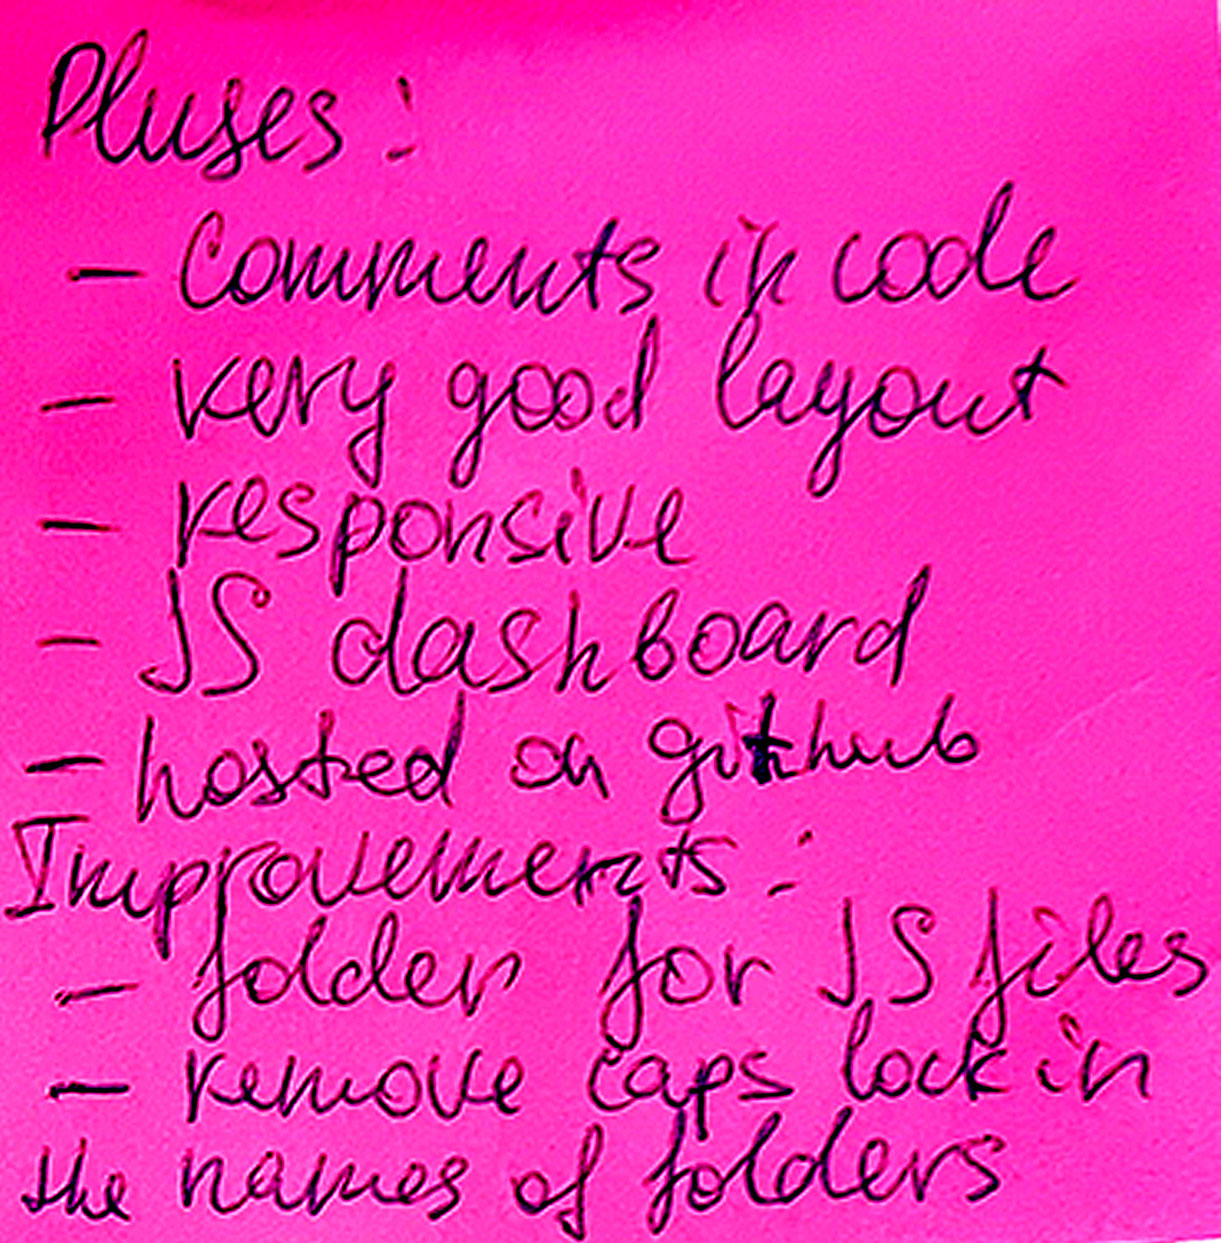 Pluses:
- Comments in code
- very good layout
- responsive
- JS dashboard
- hosted on github
Improvements:
- folder for JS files
- remove caps lock in
the names of folders